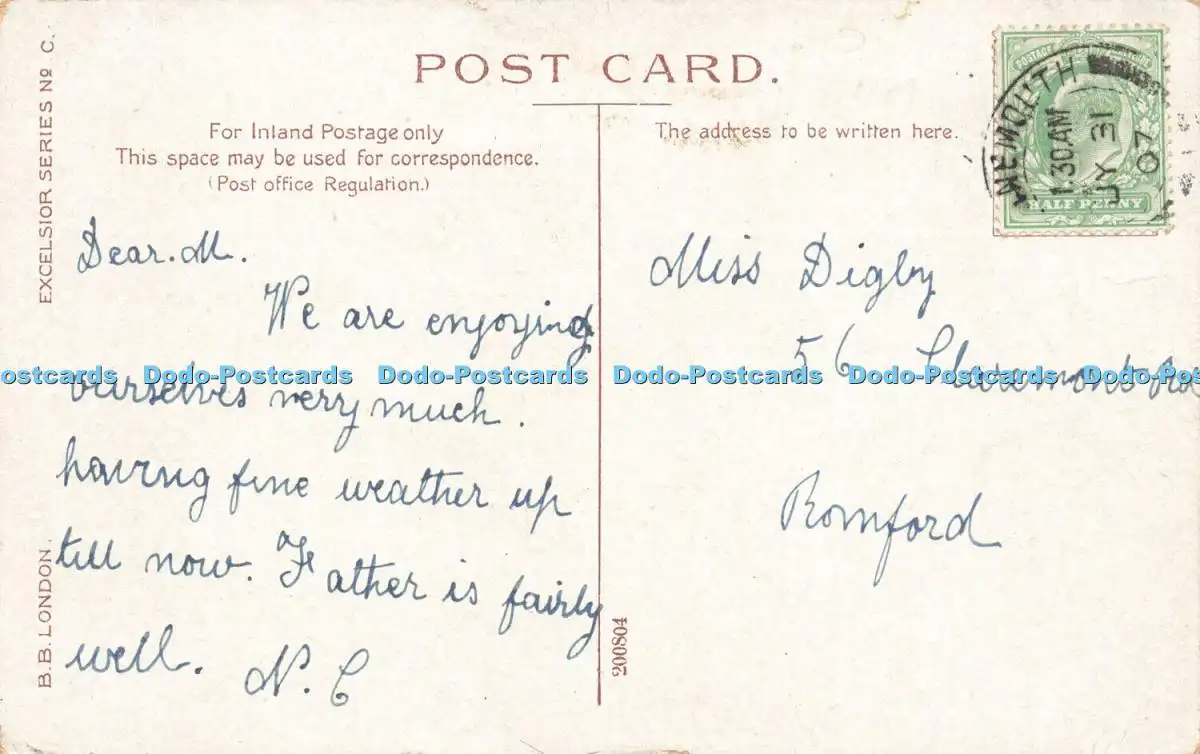 POST CARD.
EXCELSIOR SERIES No C.
B.B. LONDON.
For Inland Postage only
This space may be used for correspondence.
(Post office Regulation.)
The address to be written here.
POSTAGE
1.30AM
JY 31
07
HALF PENNY
Dear. M.
We are enjoying
ourselves very much.
having fine weather up
till now. Father is fairly
well. N. C
Miss Digby
56 Claremont Rd
Romford
200804
ostcards Dodo-Postcards Dodo-Postcards Dodo-Postcards Dodo-Postcards Dodo-Post